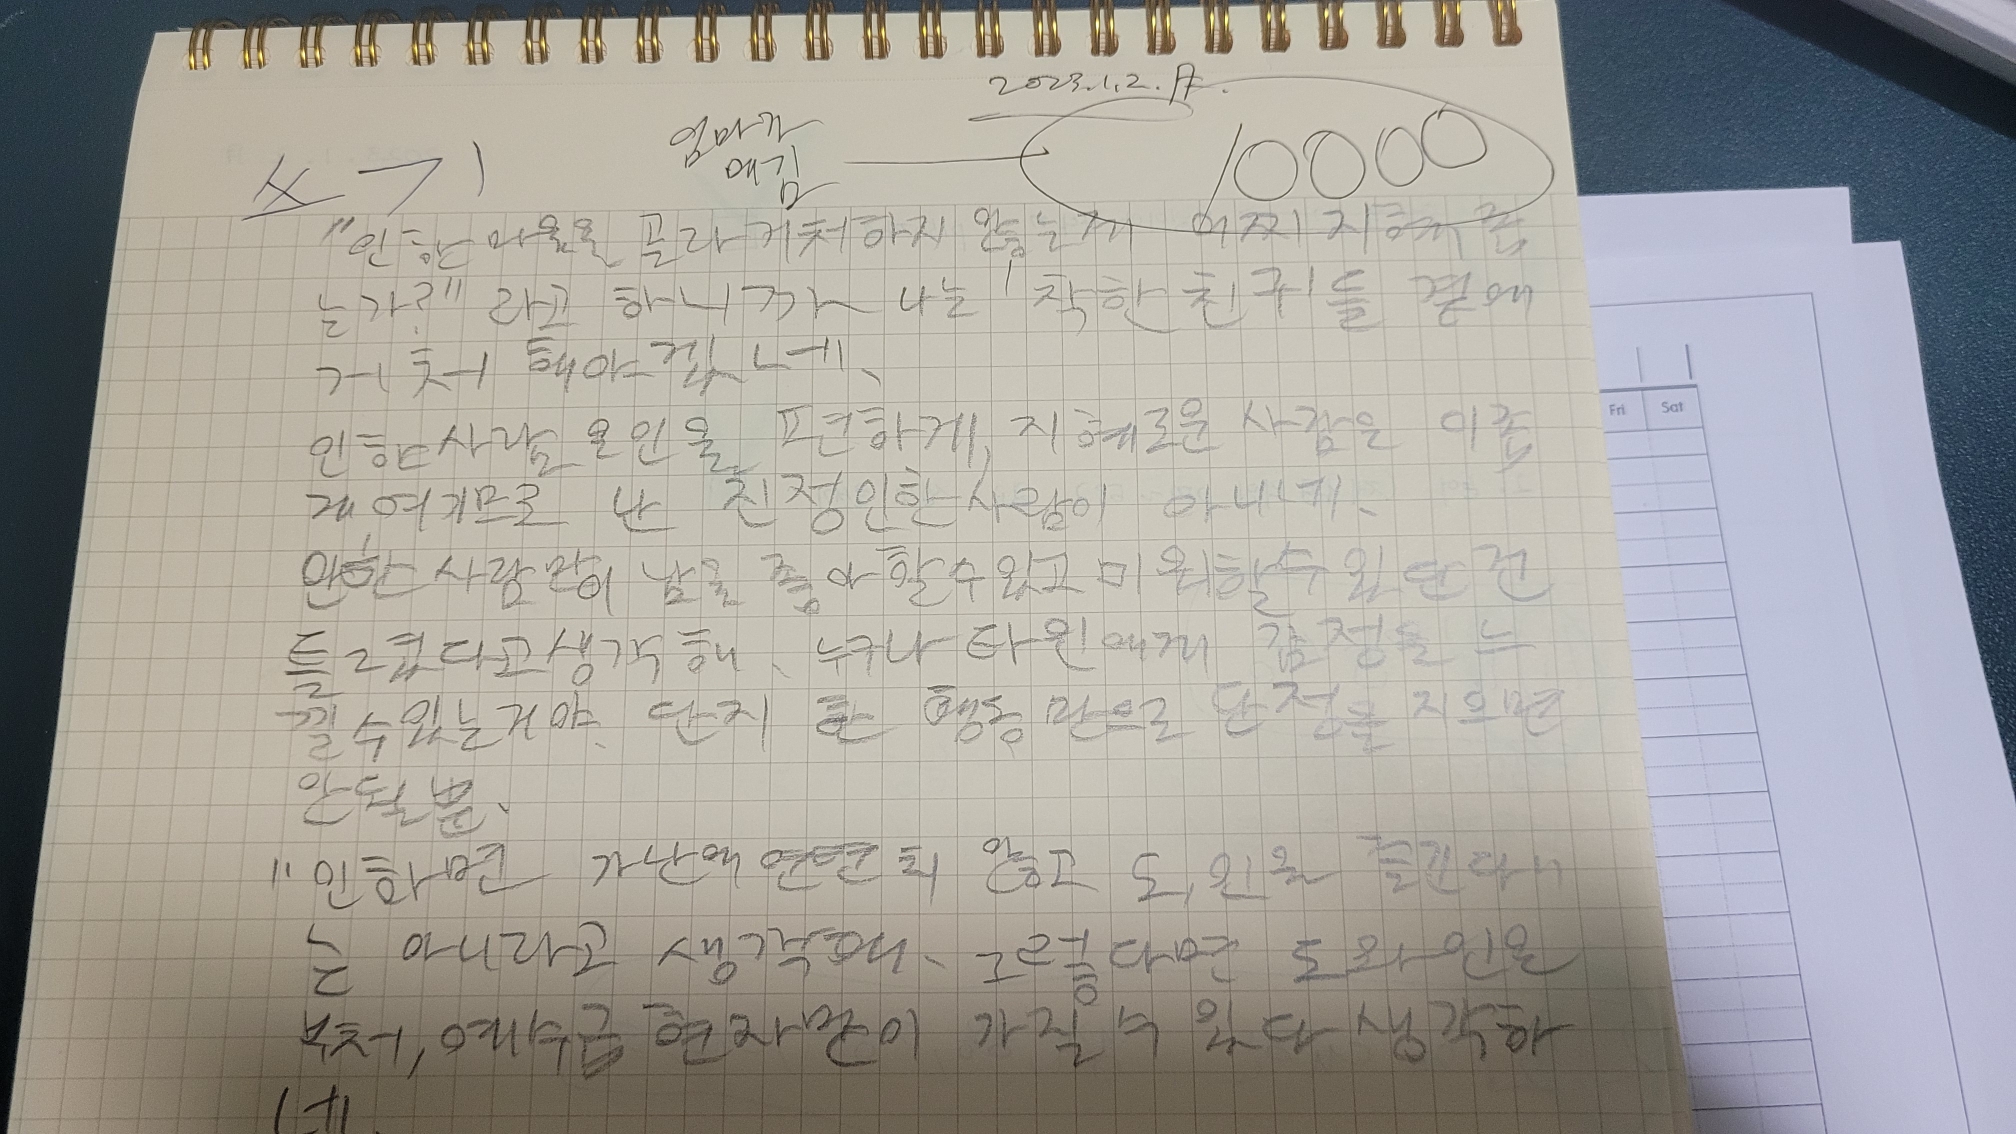 2023.1.2.月.
엄마가
매김
10000
쓰기
"인한 마을을 골라 거처하지 않는게 어찌 지혜롭
는가?" 라고 하니까 나는 착한 친구들 곁에
거처 해야겠네.
인한사람은 인을 편하게, 지혜로운 사람은 이롭
게 여기므로 난 진정 인한사람이 아니네.
인한 사람만이 남을 좋아할수있고 미워할수 있단 건
틀렸다고생각해. 누구나 타인에게 감정을 느
낄수있는거야. 단지 한 행동 만으로 단정을 지으면
안될뿐.
"인하면 가난에 연연치 않고 도, 인을 즐긴다"
는 아니라고 생각해. 그렇다면 도와 인은
부처, 예수급 현자만이 가질 수 있다 생각하
네.
Fri
Sat